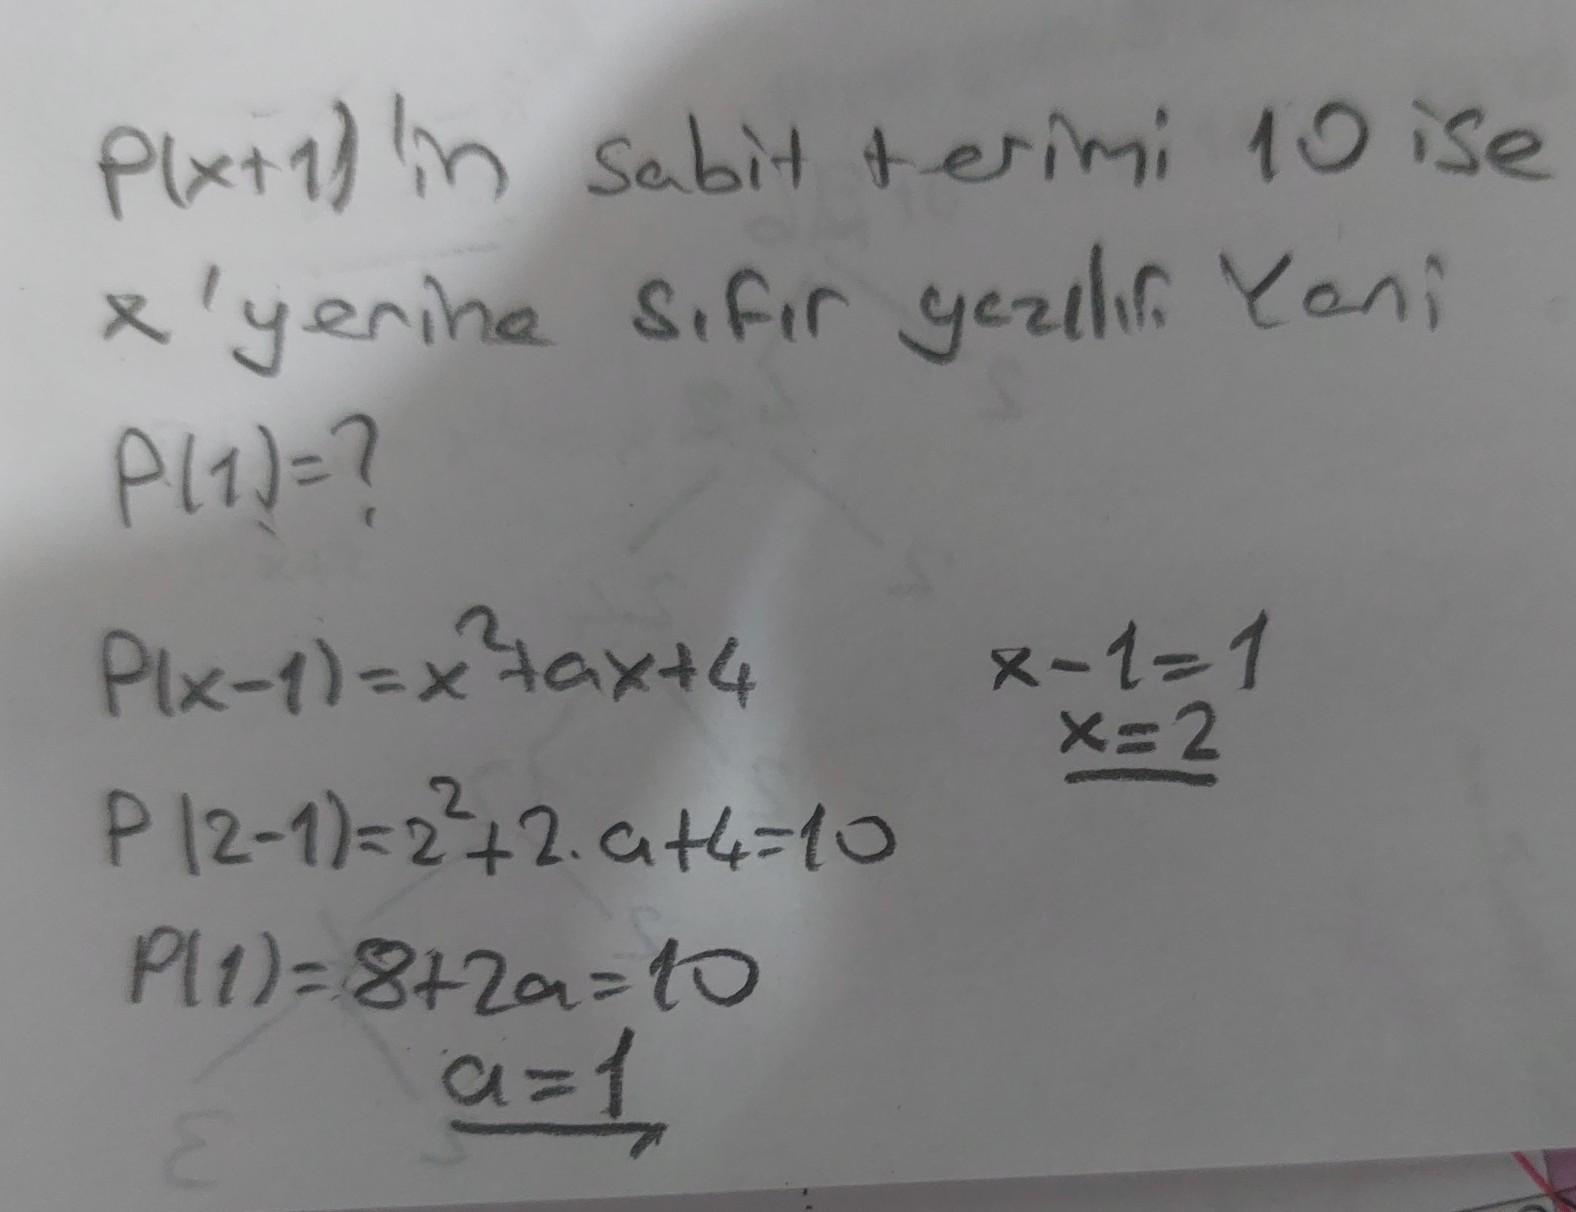 P(x+1)'in sabit terimi 10 ise
x'yerine sıfır yazılır. Yani
P(1)=?
P(x-1)=x²+ax+4
x-1=1
x=2
P(2-1)=2²+2.a+4=10
P(1)=8+2a=10
a=1